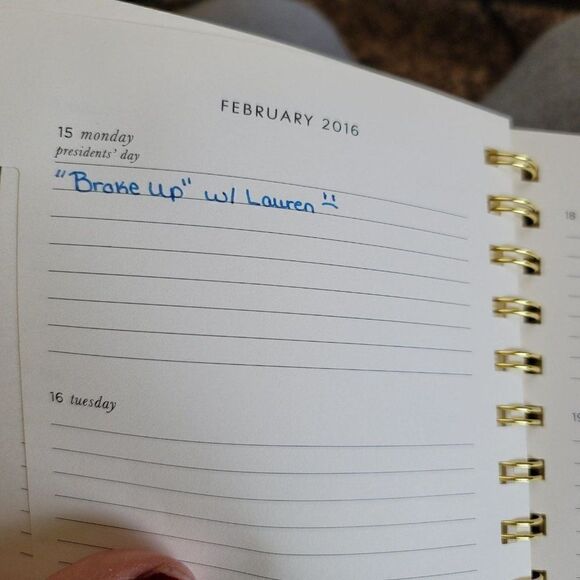 FEBRUARY 2016
15 monday
presidents' day
"Broke up" w/ Lauren :(
16 tuesday
18
19